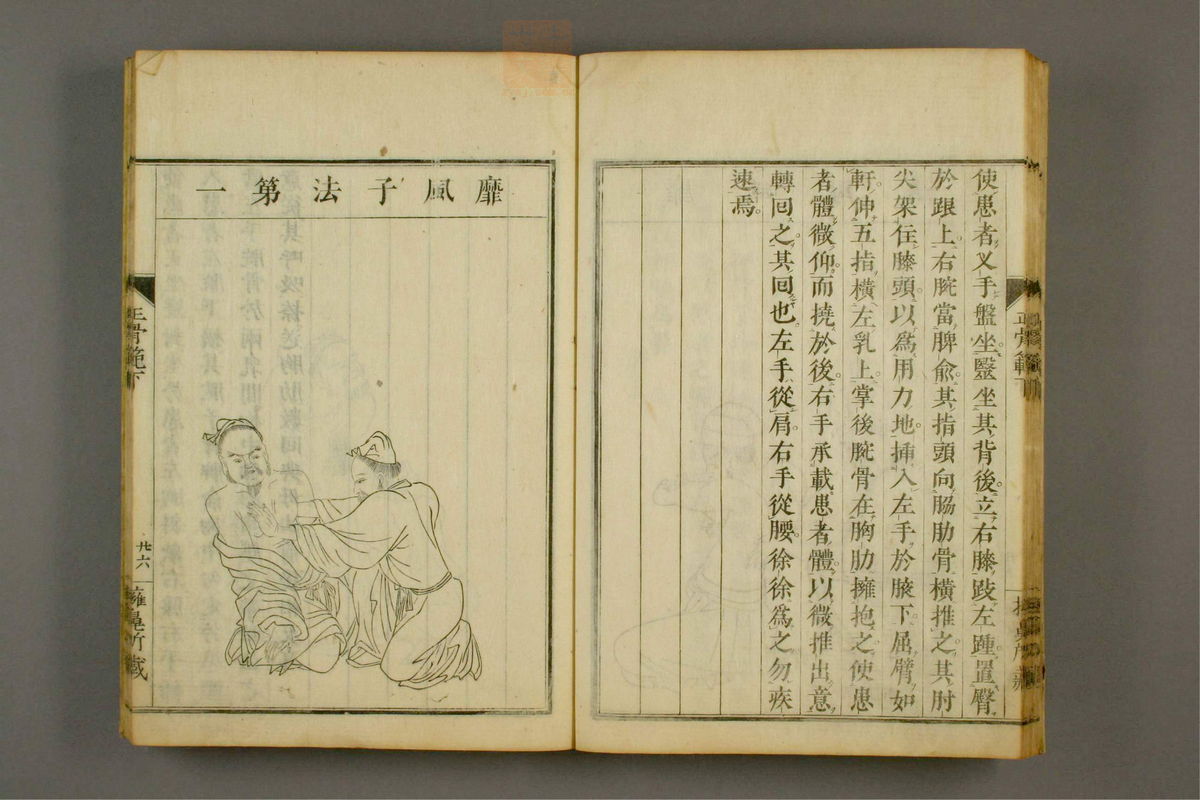 使患者乂手盤坐毉坐其背後立右膝跂左踵置臀
於跟上右腕當脾兪其指頭向脇肋骨横推之其肘
尖架住膝頭以爲用力地挿入左手於腋下屈臂如
軒伸五指横左乳上掌後腕骨在胸肋擁抱之使患
者體微仰而撓於後右手承載患者體以微推出意
轉回之其回也左手從肩右手從腰徐徐爲之勿疾
速焉
靡風子法第一
正骨範下
廿六